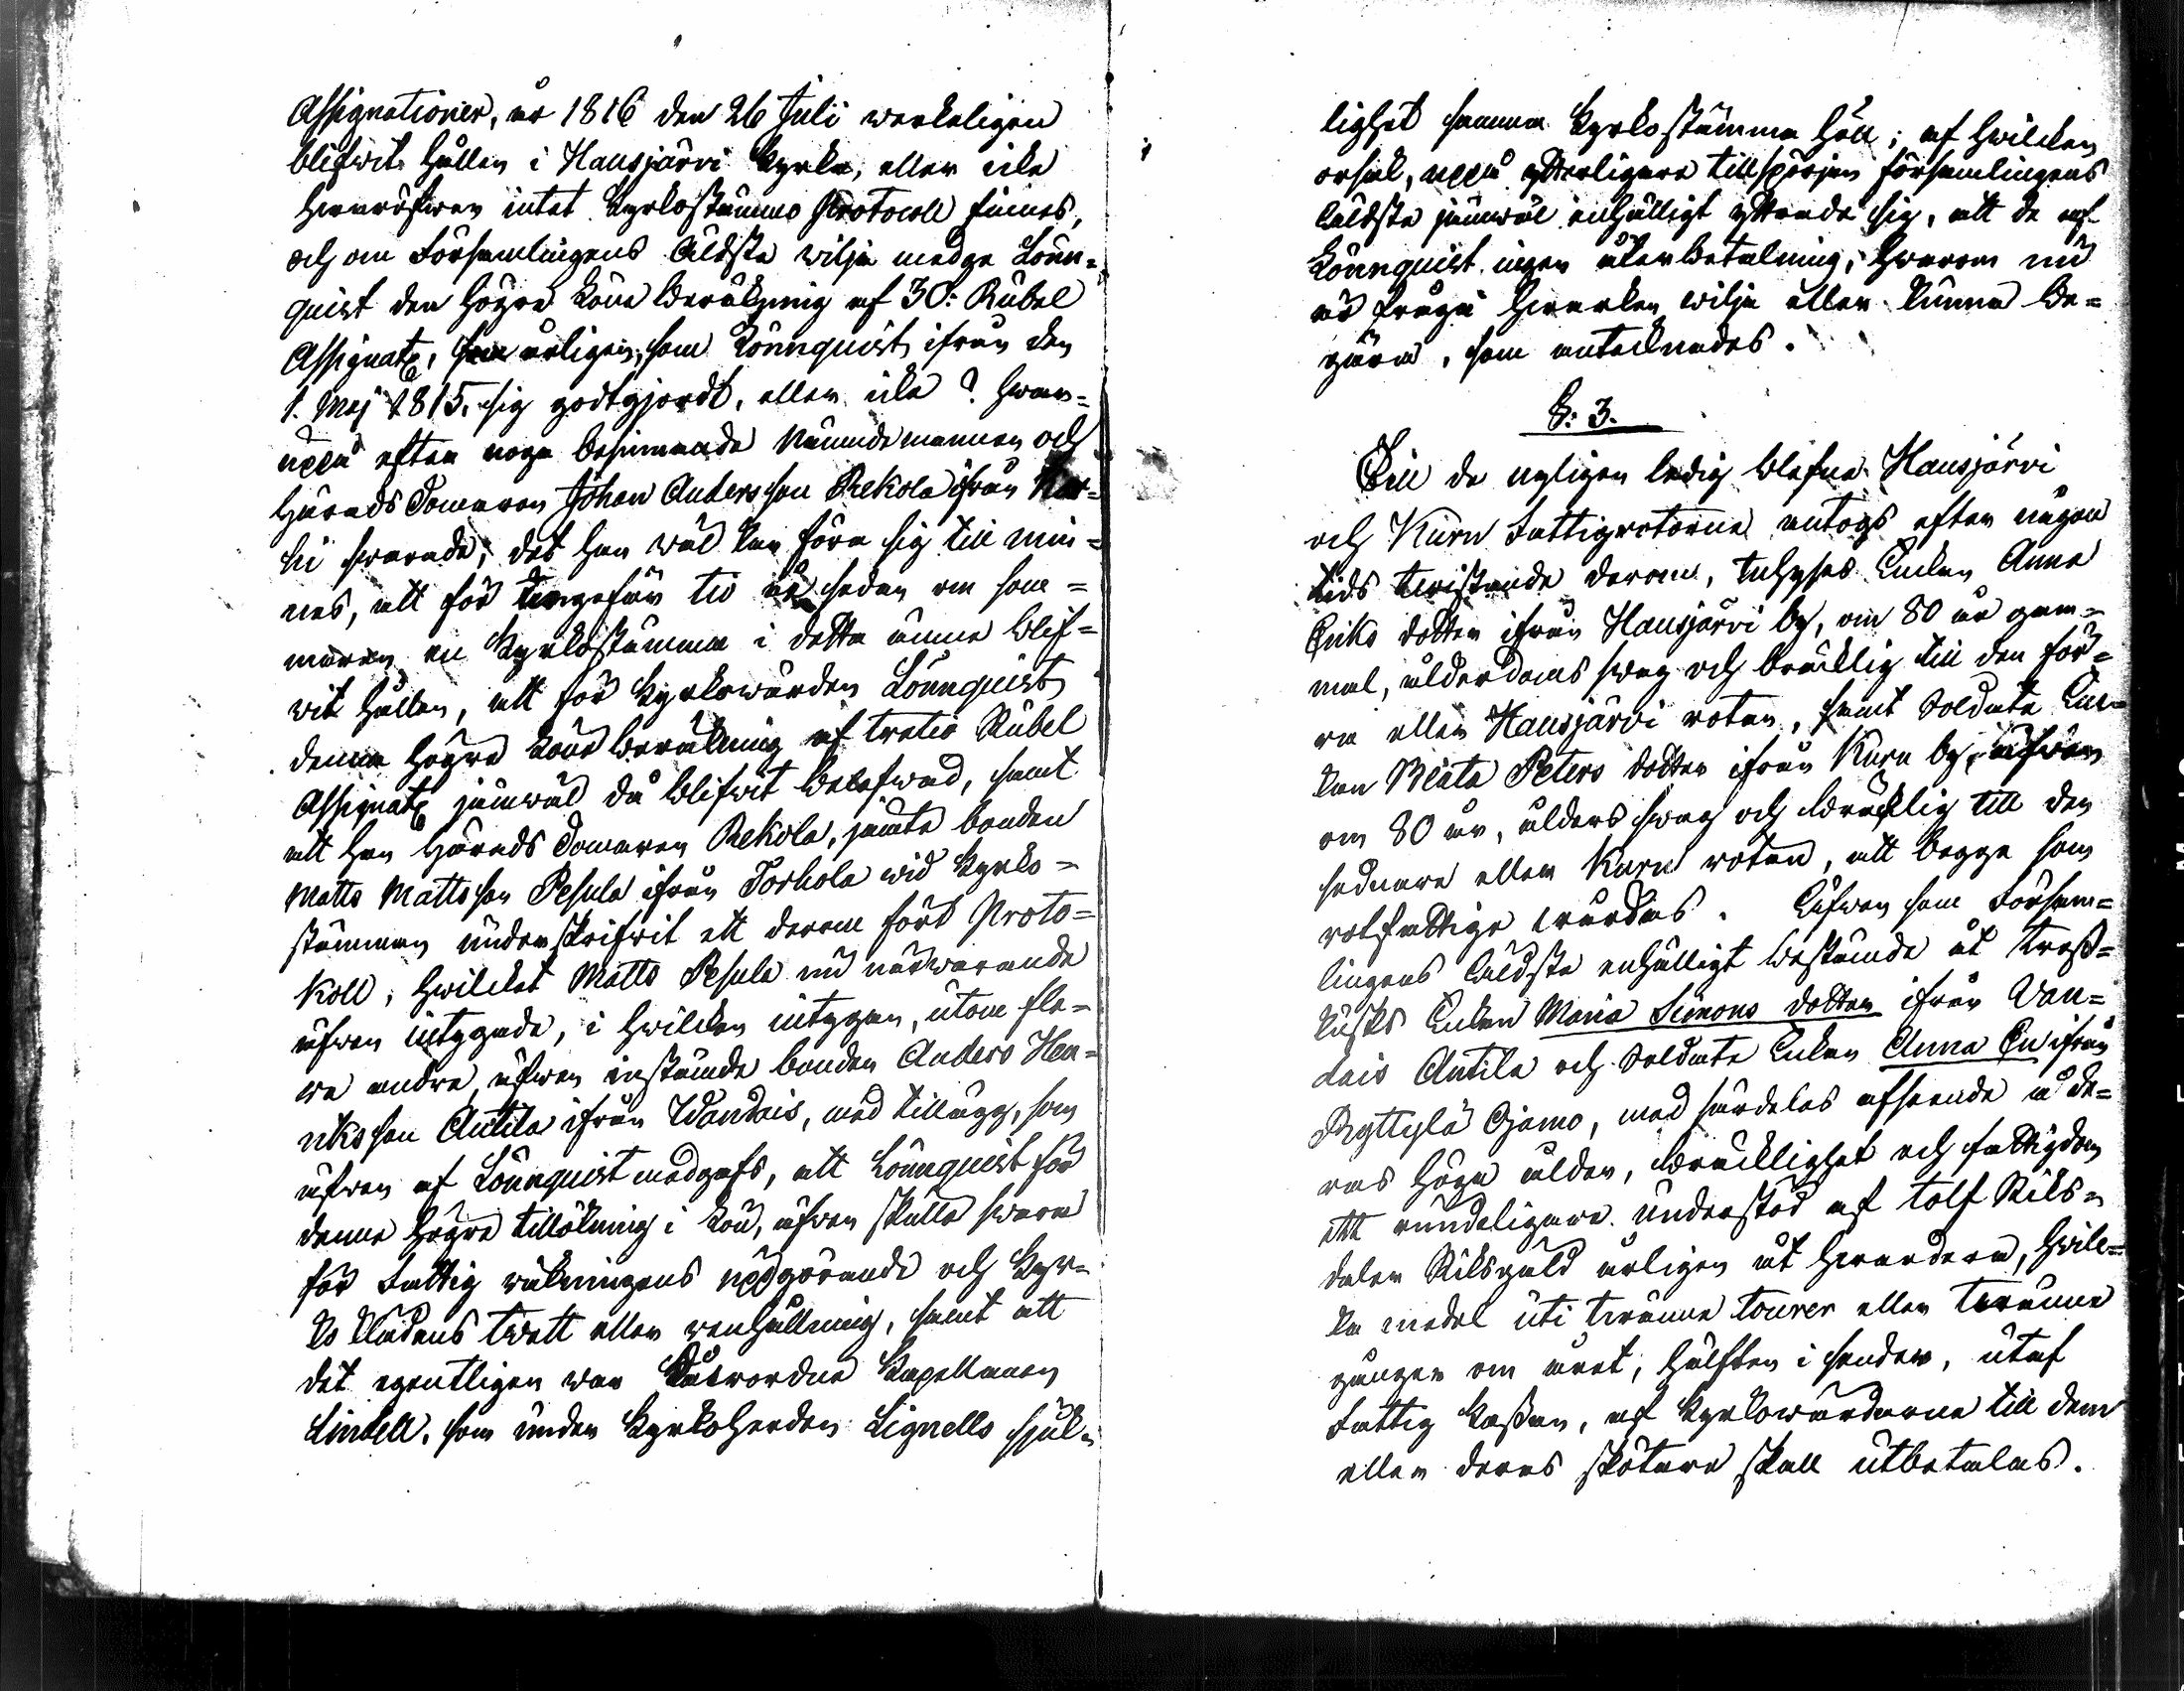 Assignationer, år 1816 den 26 Juli werkeligen
blifwit hållen i Hausjärvi Kyrka, eller icke
hwaröfwer intet Kyrkostämmo Protocoll finnes,
och om Församlingens Äldste wilja medge Lönn=
quist den högre Löne beräkning af 30: Rubel
Assignat, årligen, som Lönnquist ifrån den
1. Maj 1815. sig godtgjordt, eller icke? hwar=
uppå efter noga besinnande Nämndemannen och
Härads Domaren Johan Andersson Rekola ifrån
hi swarade; det han wäl kan föra sig till min=
nes, att för ungefär tio år sedan om som=
maren en Kyrkostämma i detta ämne blif=
wit hållen, att för Kyrkowärden Lönnquist
denna högre Löne beräkning af tretio Rubel
Assignat jämwäl då blifwit belefwad, samt
att han Härads Domaren Rekola, jämte bonden
Matts Mattsson Pesula ifrån Torhola wid Kyrko=
stämman underskrifwit ett derom fört Proto=
koll, hwilcket Matts Pesula nu närwarande
äfwen intygade, i hwilcken intygan, utom fle=
re andre, äfwen instämde bonden Anders Hen=
riksson Anttila ifrån Wandais, med tillägg, som
äfwen af Lönnquist medgafs, att Lönnquist för
denna högre tillökning i Lön, äfwen skulle swara
för Fattig räkningens uppgörande och Kyr=
ko klädens twätt eller renhållning, samt att
det egentligen war Kapellanen
Lindell, som under Kyrkoherden Lignells sjuk=
lighet samma Kyrkostämma höll; af hwilcken
orsak, uppå ytterligare tillspörjan Församlingens
Äldste jämwäl enhälligt yttrade sig, att de af
Lönnquist ingen återbetalning, hwarom nu
är fråga hwarken wilja eller kunna be=
gära, som antecknades.
§: 3.
Till de nyligen ledig blefne Hausjärvi
och Kuru Fattigrotorne antogs efter någon
tids twistande derom, Inhyses Enkan Anna
Eriks dotter ifrån Hausjärvi by, om 80 år gam=
mal, ålderdoms swag och bräcklig till den för=
ra eller Hausjärvi rotan, samt Soldate En=
kan Beata Peters dotter ifrån Kuru by, äfwen
om 80 år, ålders swag och bräcklig till den
sednare eller Kuru rotan, att begge som
rotfattige wårdas. Äfwen som Försam=
lingens Äldste enhälligt bestämde åt Tross=
kusks Enkan Maria Simons dotter ifrån Van=
dais Antila och Soldate Enkan Anna En ifrån
Ryttylä Ojamo, med särdeles afseende å de=
ras höga ålder, bräcklighet och fattigdom
ett rundeligare understöd af tolf Riks=
daler Riksgäld årligen åt hwardera, hwile=
ka medel uti twänne tourer eller twänne
gånger om året, hälften i sender, utaf
Fattig Kassan, af Kyrkowärdarne till dem
eller deras skötare skall utbetalas.